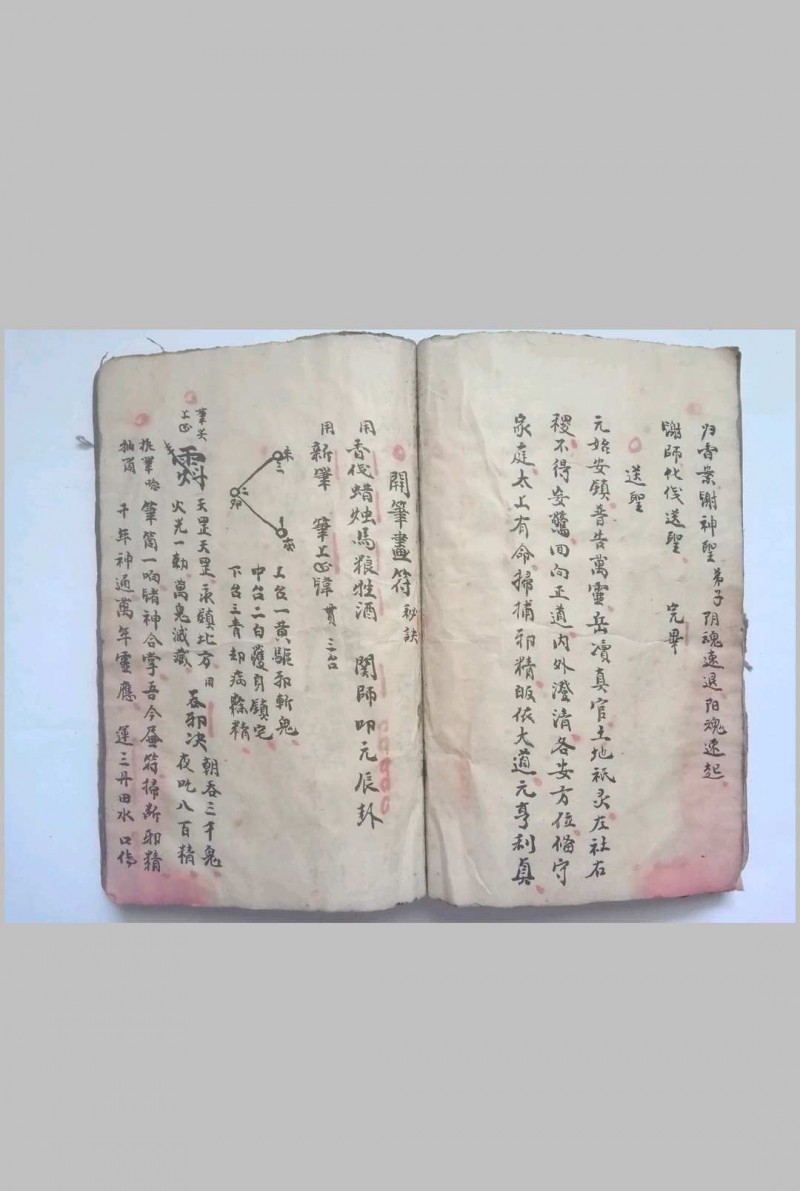 归香案谢神聖 弟子阴魂速退阳魂速起
谢师化伐送聖 完畢
送聖
元始安鎮普告萬靈岳凟真官土地祇灵左社右
稷不得妄驚回向正道内外澄清各安方位俻守
家庭太上有命掃捕邪精皈依大道元亨利貞
開筆畫符秘訣
用香伐蜡烛馬粮牲酒 関師叩元辰卦
用新筆 筆上 諱 貫三台
上台一黄驅邪斬鬼
中台二白護身鎮宅
下台三青却病除精
朱 三
二
一
吞邪决 朝吞三千鬼
夜吃八百精
筆尖
天罡天罡永鎮北方用
火光一勅萬鬼滅藏
振筆唸 筆筒一响諸神合掌吾今 符掃断邪精
抽筒 千年神通萬年靈應 運三丹田水口傳